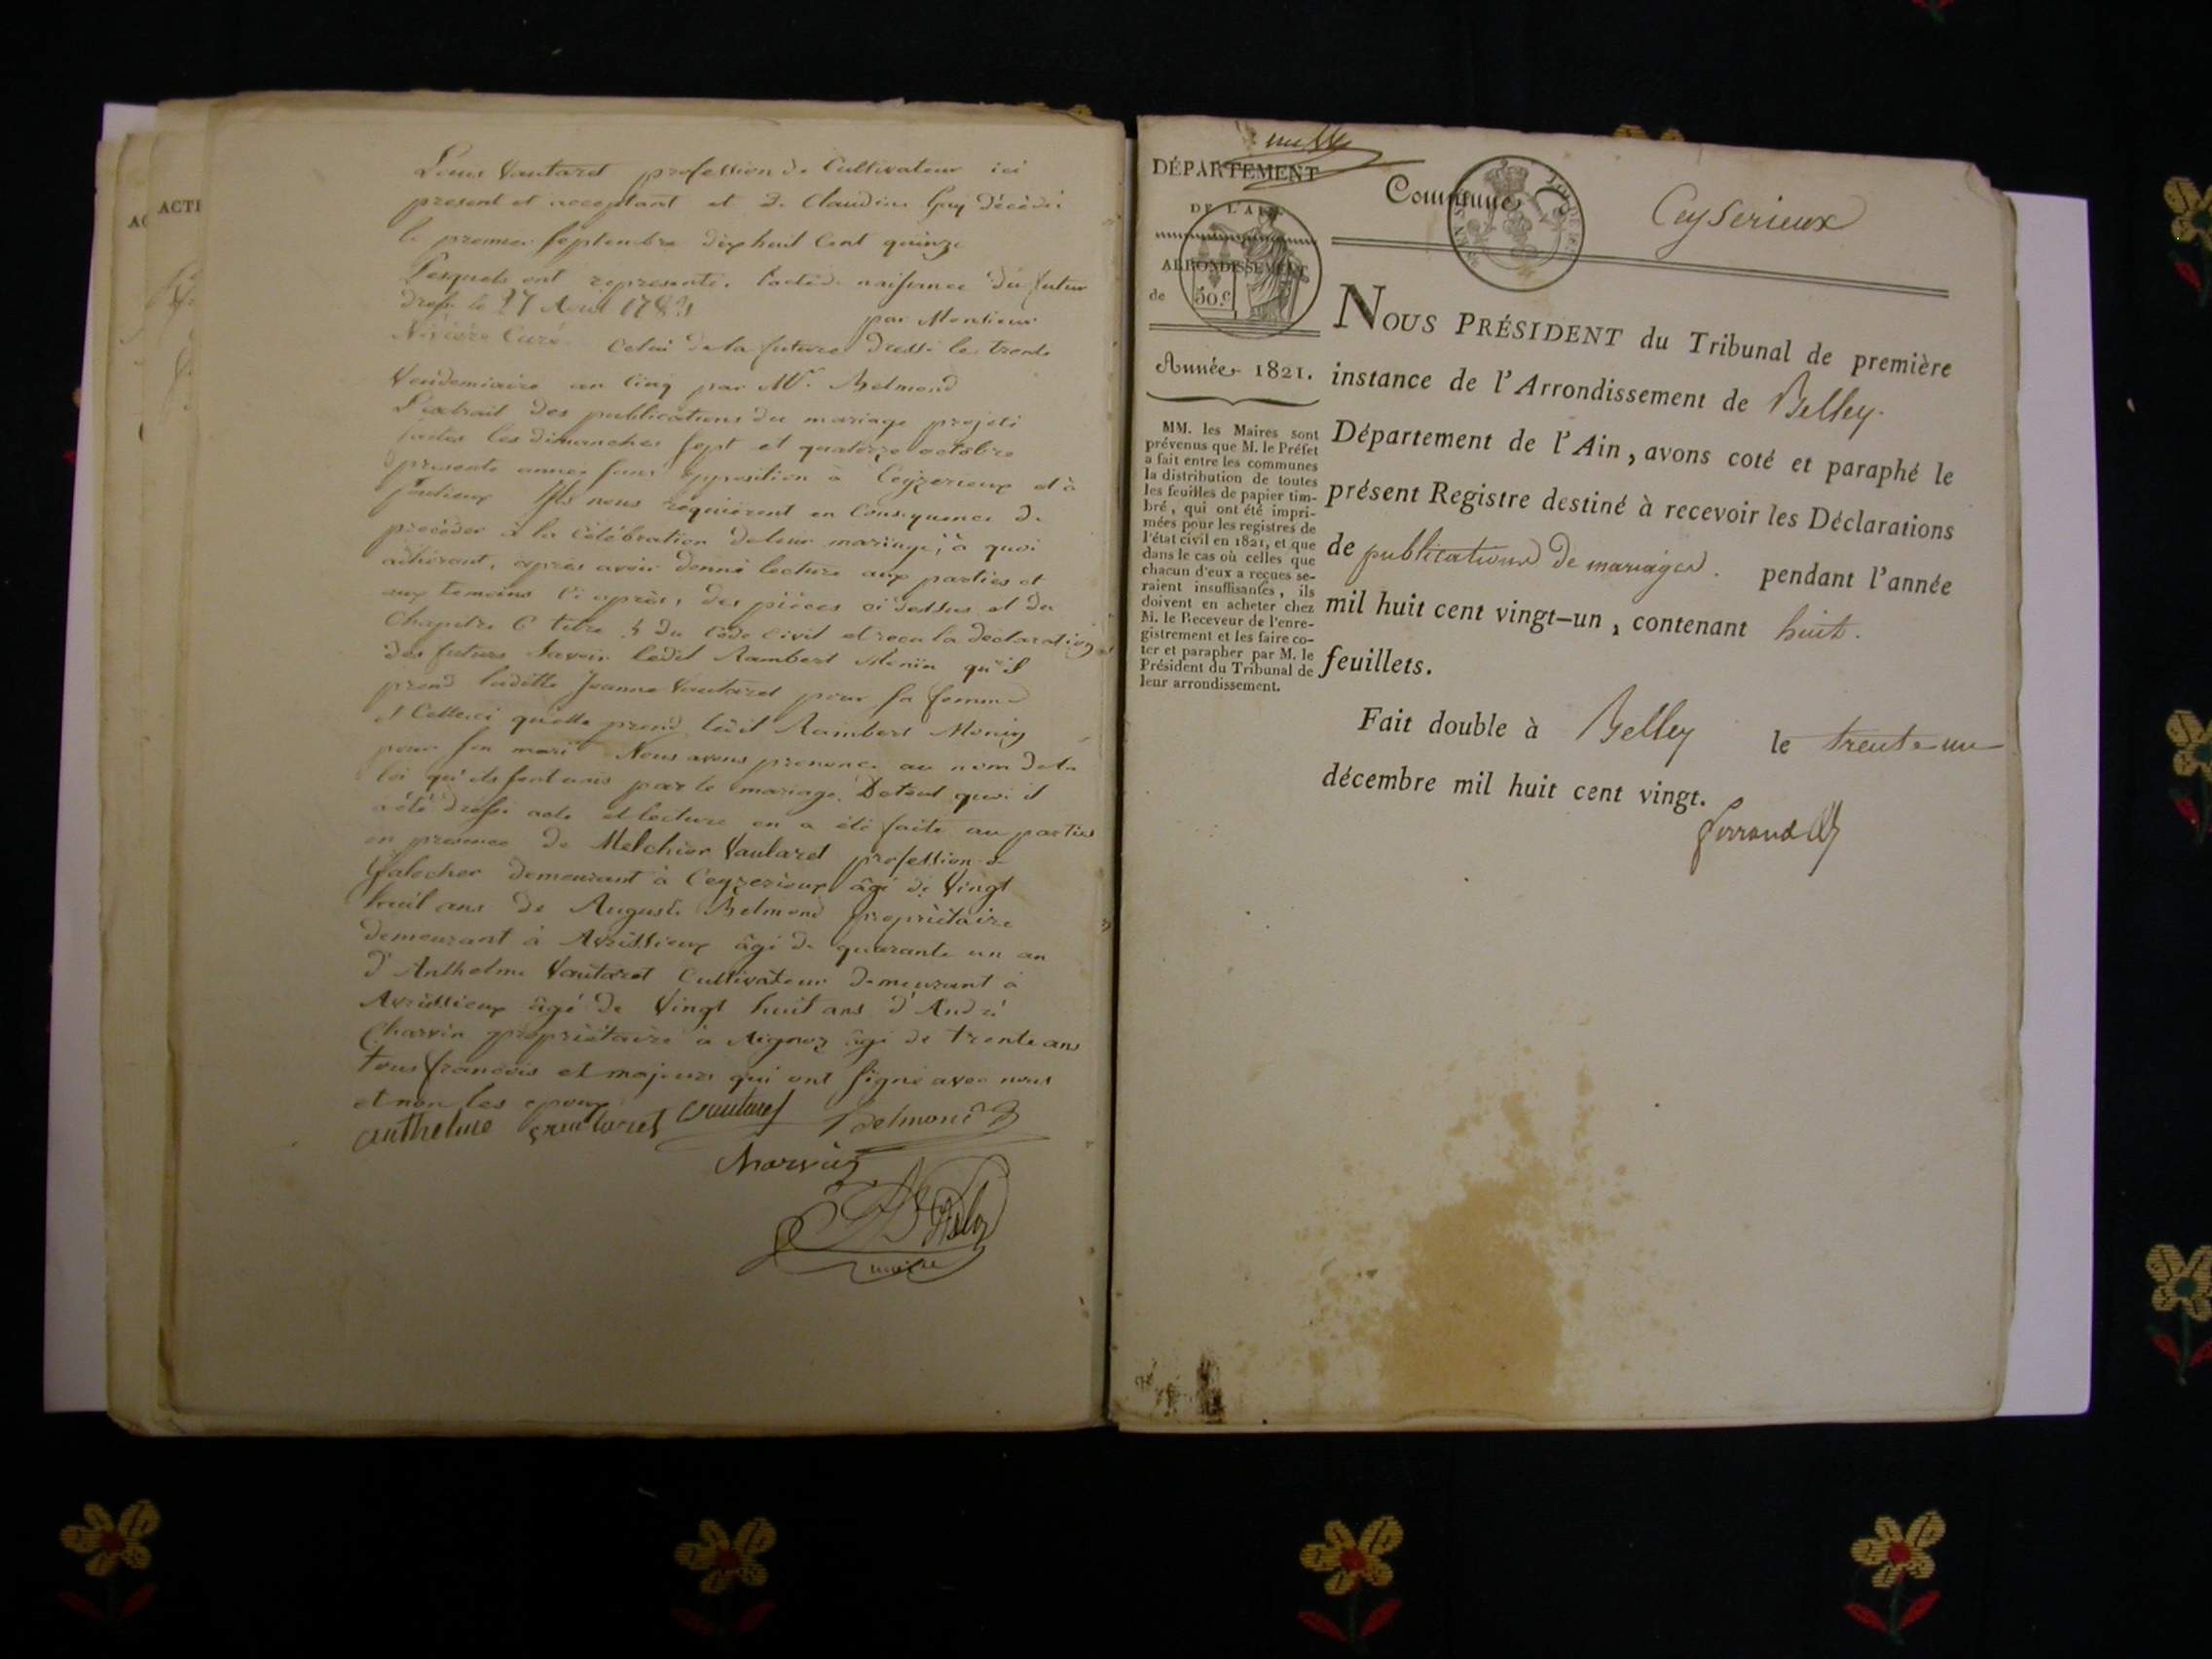 ACTI
AC
Louis Vautaret profession de Cultivateur ici
present et acceptant et de Claudine Guy décédée
le premier septembre dix huit cent quinze
Lesquels ont représenté l'acte de naissance du futur
dressé le 27 Aout 1789 par Monsieur
Curé celui de la future dressé le trente
Vendemiaire an Cinq par Mr. Belmond
L'extrait des publications du mariage projeté
faites les dimanches sept et quatorze octobre
presente année sans opposition à Ceyzerieux et à
Ils nous requièrent en Conséquence de
proceder à la Célébration de leur mariage, à quoi
adhérant, après avoir donné lecture aux parties et
aux temoins ci après, des pièces ci dessus et du
Chapitre 6 titre 5 du Code Civil et reçu la déclaration
des futurs Savoir ledit Rambert Monin qu'il
prend laditte Jeanne Vautaret pour sa femme
et Celleci quelle prend ledit Rambert Monin
pour son mari Nous avons prononcé au nom de la
loi qu'ils sont unis par le mariage. De tout quoi il
a été dressé acte et lecture en a été faite au parties
en presence de Melchior Vautaret profession de
Galocher demeurant à Ceyzerieux âgé de Vingt
huit ans de Auguste Belmond propriétaire
demeurant à Avrissieux âgé de quarante un an
d'Anthelme Vautaret Cultivateur demeurant à
Avrissieux âgé de Vingt huit ans d'André
Charvin propriétaire à Aignoz âgé de trente ans
tous francois et majeurs qui ont signé avec nous
et non les epoux
anthelme vautaret vautaret Belmond
Charvin
maire
nulle
DÉPARTEMENT
DE L'AIN
ARRONDISSEMENT
de
50.c
Année 1821.
MM. les Maires sont
prévenus que M. le Préfet
a fait entre les communes
la distribution de toutes
les feuilles de papier tim-
bré, qui ont été impri-
mées pour les registres de
l'état civil en 1821, et que
dans le cas où celles que
chacun d'eux a reçues se-
raient insuffisantes, ils
doivent en acheter chez
M. le Receveur de l'enre-
gistrement et les faire co-
ter et parapher par M. le
Président du Tribunal de
leur arrondissement.
Commune Ceyserieux
NOUS PRÉSIDENT du Tribunal de première
instance de l'Arrondissement de Belley.
Département de l'Ain, avons coté et paraphé le
présent Registre destiné à recevoir les Déclarations
de publications de mariages. pendant l'année
mil huit cent vingt-un, contenant huit.
feuillets.
Fait double à Belley le trente un
décembre mil huit cent vingt.